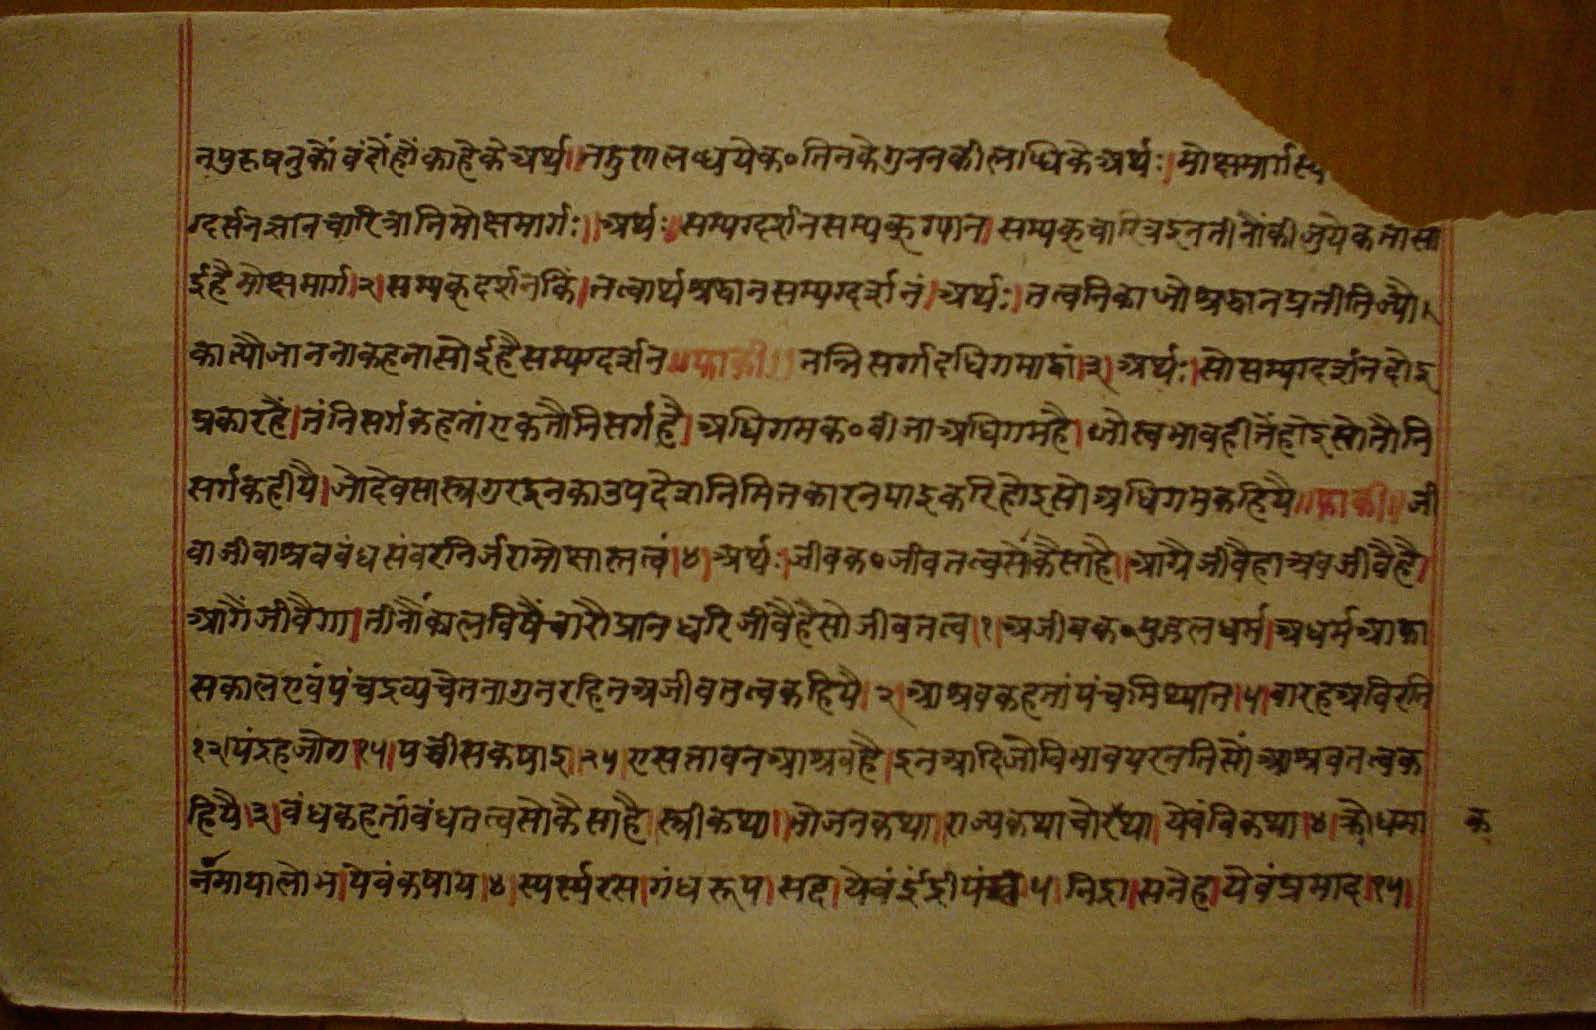 नपुरुषनुकौं वंदौंहौं काहेके अर्थ। तद्गुणलब्धये क० तिनके गुननकी लब्धिके अर्थः। मोक्षमार्गस्य
ग्दर्सनज्ञानचारित्रानि मोक्षमार्गः।। अर्थः। सम्यग्दर्शन सम्यक्ग्यान। सम्यक्चारित्र इन तीनौंकी जुयेकतासो
ईहै मोक्षमार्ग।२। सम्यक्दर्शनकिं। तत्वार्थश्रद्धानसम्यग्दर्शनं। अर्थः। तत्वनिका जो श्रद्धान प्रतीति ज्यौ
का त्यौ जाननाकहना सोईहै सम्यग्दर्शन।। फाकी।। तन्निसर्गादधिगमाद्वा।३। अर्थः। सो सम्यग्दर्शन दोइ
प्रकारहै। तं निसर्ग कहतां एकतौ निसर्गहै। अधिगमक० बीजा अधिगमहै। जो स्वभावहीतें होइ सो तौ नि
सर्ग कहीयै। जो देवसास्त्रगुरइनका उपदेश निमित्तकारन पाइकरि होइ सो अधिगम कहियै।। फाकी।। जी
वाजीवाश्रवबंधसंवरनिर्जरामोक्षास्तत्वं।४। अर्थः। जीवक० जीवतत्वसो कैसाहै। आगै जीवैहा अब जीवैहै।
आगैं जीवैगा। तीनौंकालविषैं च्यारौं प्रान धरि जीवैहै सो जीवतत्व।१। अजीवक० पुद्गलधर्म। अधर्म आका
स काल एवं पंचद्रव्य चेतनागुनरहित अजीवतत्व कहियै।२। आश्रव कहतां पंचमिथ्यात।५। बारह अविरति
१२। पंद्रहजोग १५। पचीसकषाइ।२५। ए सत्तावन आश्रवहै। इन आदि जो विभावपरनति सो आश्रवतत्व क
हियै।३। बंध कहतां बंधतत्व सो कैसाहै। स्त्रीकथा। भोजनकथा। राज्यकथा चोरथा। येवं विकथा।४। क्रोधमा
क
नमायालोभ। येवं कषाय।४। स्पर्स्य रस। गंध रूप। सद्द। येवं इंद्री पंच ५। निद्रा। सनेह। येवं प्रमाद।१५।